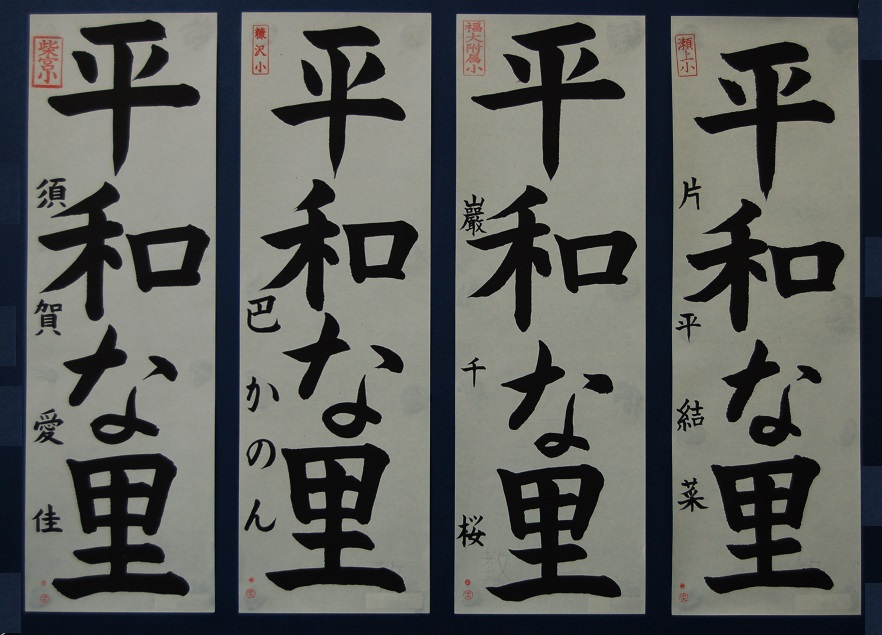 平和な里
瀬上小
片平結菜
平和な里
福大附属小
巖千桜
平和な里
糠沢小
巴かのん
平和な里
柴宮小
須賀愛佳